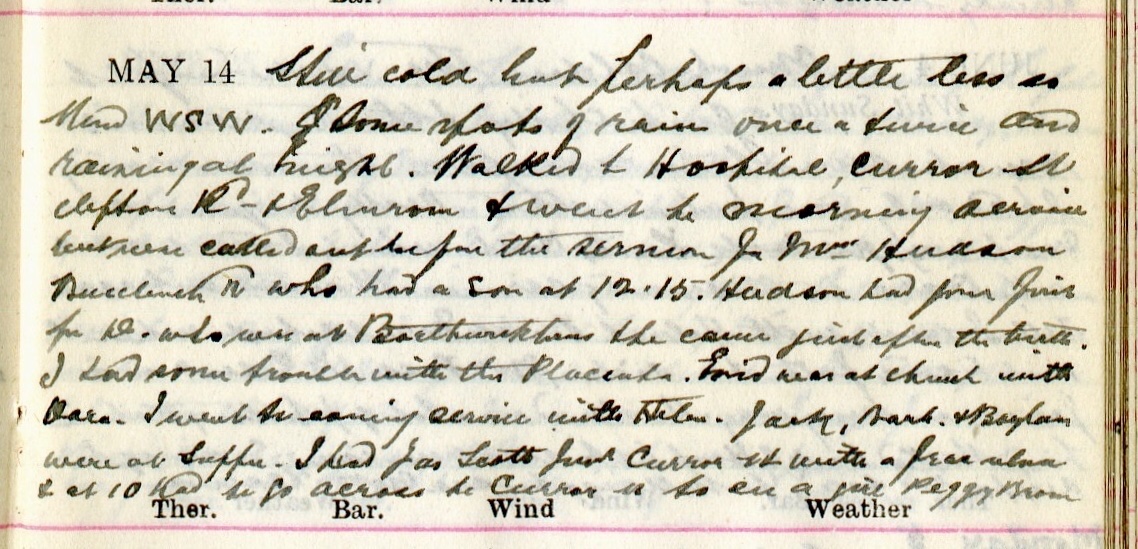 Ther. Bar. Wind Weather
MAY 14 Still cold but perhaps a little less as
Wind WSW. Some spots of rain once or twice and
raining at night. Walked to Hospital, Curror St
Clifton Rd & Elmrow & went to morning service
but was called out before the sermon for Mrs Hudson
Buccleuch Rd who had a son at 12.15. Hudson had gone first
for D. who was at Borthwickbrae & he came just after the birth.
I had some trouble with the Placenta. Enid was at church with
Dara. I went to evening service with Helen. Jack, Barb. &
were at Supper. I had Jas Scott Junr Curror St with a frac ulna
& at 10 had to go across to Curror St to see a girl Peggy
Ther. Bar. Wind Weather